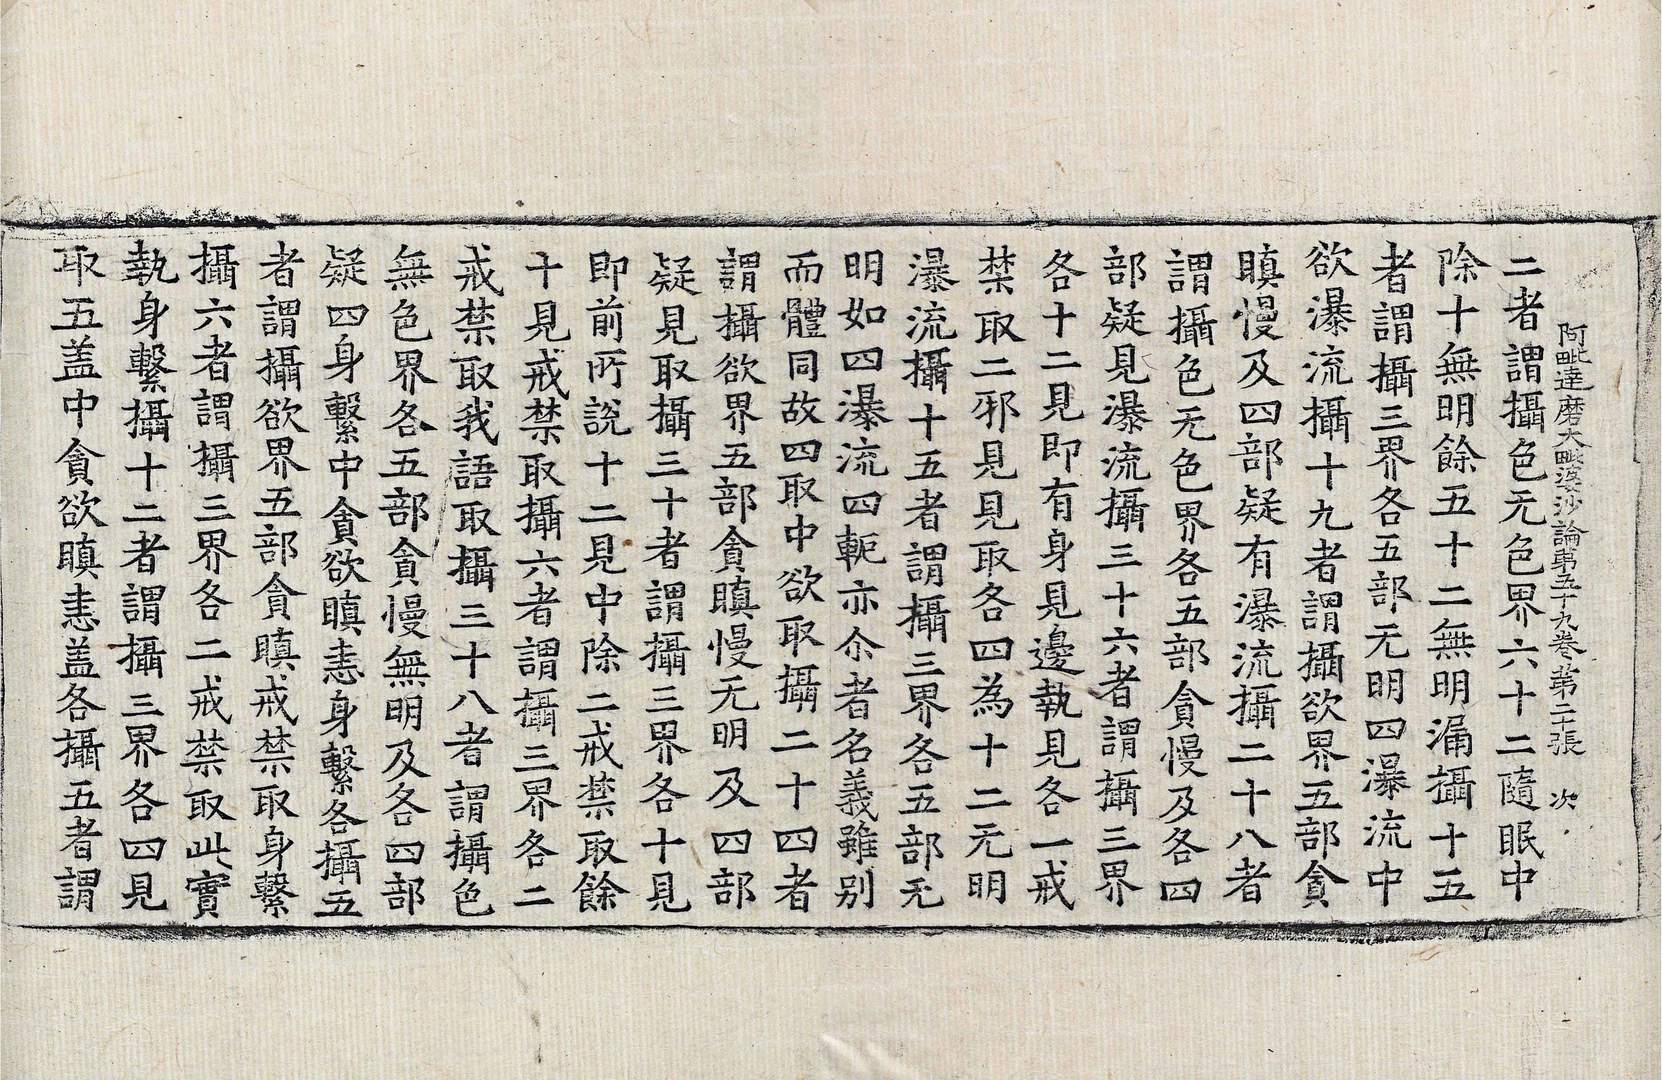 阿毗達磨大毗婆沙論第五十九卷第二十張 次
二者謂攝色无色界六十二隨眠中
除十無明餘五十二無明漏攝十五
者謂攝三界各五部无明四瀑流中
欲瀑流攝十九者謂攝欲界五部貪
瞋慢及四部疑有瀑流攝二十八者
謂攝色无色界各五部貪慢及各四
部疑見瀑流攝三十六者謂攝三界
各十二見即有身見邊執見各一戒
禁取二邪見見取各四為十二无明
瀑流攝十五者謂攝三界各五部无
明如四瀑流四軛亦尒者名義雖別
而體同故四取中欲取攝二十四者
謂攝欲界五部貪瞋慢无明及四部
疑見取攝三十者謂攝三界各十見
即前所說十二見中除二戒禁取餘
十見戒禁取攝六者謂攝三界各二
戒禁取我語取攝三十八者謂攝色
無色界各五部貪慢無明及各四部
疑四身繫中貪欲瞋恚身繫各攝五
者謂攝欲界五部貪瞋戒禁取身繫
攝六者謂攝三界各二戒禁取此實
執身繫攝十二者謂攝三界各四見
取五盖中貪欲瞋恚盖各攝五者謂